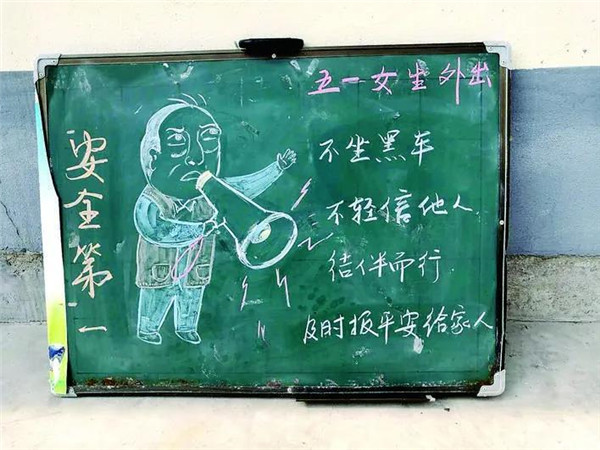 五一女生外出
安全第一
不坐黑车
不轻信他人
结伴而行
及时报平安给家人